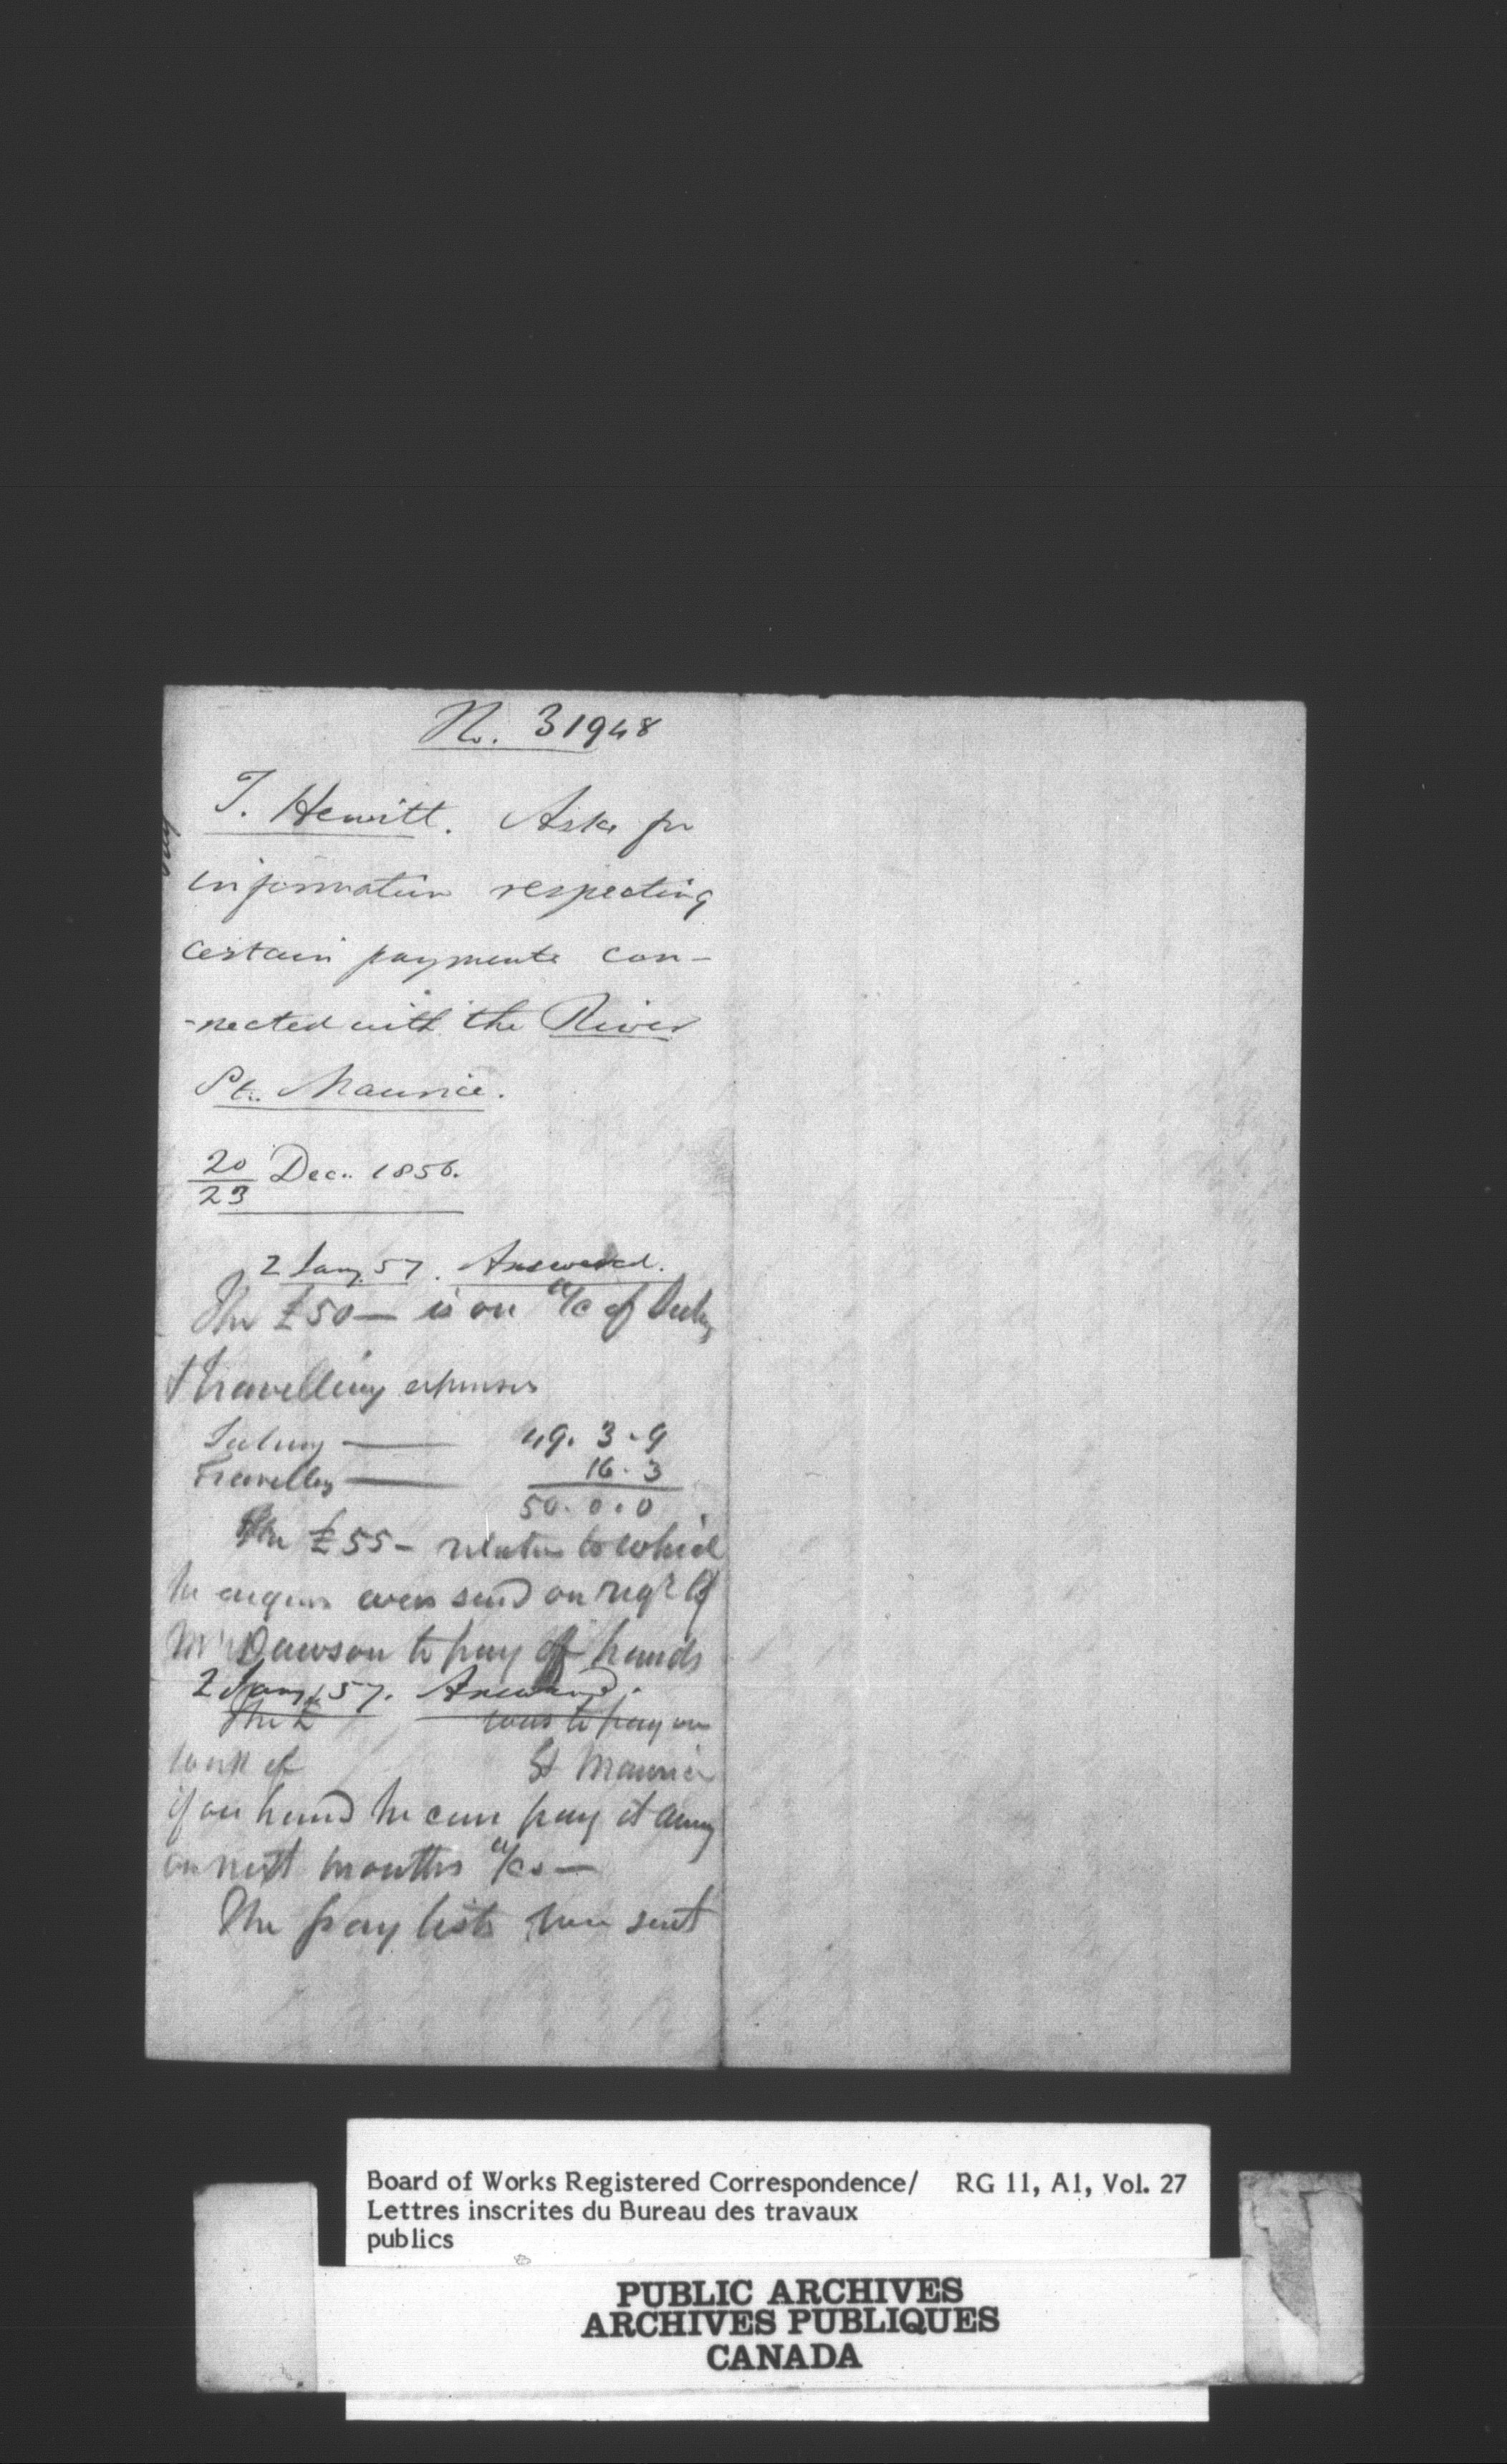 No. 31948
T. Hewitt. Asks for
information respecting
certain payments con-
-nected with the River
St. Maurice.
20/23 Dec. 1856.
2 Jany. 57. Answered.
The £50— is on a/c of
& travelling expenses
Salary — 49. 3. 9
Travelling — 16. 3
50. 0. 0
The £55— relative to which
he enquires were send on reqn of
Mr Dawson to pay off hands
2 Jany. 57. Answered.
The £ was to pay on
work of St Maurice
if on hand he can pay it away
on next months a/cs—
The pay lists were sent
Board of Works Registered Correspondence/ RG 11, A1, Vol. 27
Lettres inscrites du Bureau des travaux
publics
PUBLIC ARCHIVES
ARCHIVES PUBLIQUES
CANADA